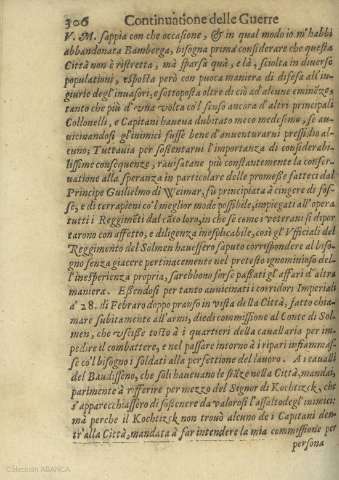 306 Continuatione delle Guerre
V. M. sappia con che occasione, & in qual modo io m'habbi
abbandonata Bamberga, bisogna prima considerare che questa
Città non è ristretta, mà sparsa quà, e là, sciolta in diverse
populationi, esposta però con puoca maniera di difesa all'in-
giurie degl'invasori, e sottoposta oltre di ciò ad alcune eminenze,
tanto che più d'una volta co'l senso ancora d'altri principali
Collonelli, e Capitani haueua dubitato meco medesimo, se au-
uicinandosi gl'inimici fusse bene d'auuenturarui pressidio al-
cuno; Tuttauia per sostentarui l'importanza di considerabi-
lissime conseguenze, rauisatane più constantemente la conser-
uatione alla speranza in particolare delle promesse fatteci dal
Principe Guilielmo di Weimar, fù principiata à cingere di fos-
se, e di terrapieni co'l meglior modo possibile, impiegati all'opera
tutti i Reggimẽti dal cãto loro, in che se come i veterani si dipor-
tarono con affetto, e diligenza inesplicabile, così gl'Vfficiali del
Reggimento del Solmen hauessero saputo correspondere al biso-
gno senza giacere pertinacemente nel pretesto ignominioso del-
l'inesperienza propria, sarebbono forse passati gl'affari d'altra
maniera. Essendosi per tanto auuicinati i corridori Imperiali
a' 28. di Febraro doppo pranso in vista della Città, fatto chia-
mare subitamente all'armi, diedi commissione al Conte di Sol-
men, che vscisse tosto à i quartieri della cauallaria per im-
pedire il combattere, e nel passare intorno à i ripari infiammas-
se co'l bisogno i soldati alla perfettione del lauoro. A i caualli
del Baudisseno, che soli haueuano le stãze nella Città, mandai,
parimente à rifferire per mezzo del Segnor di Kochtizck, che
s'apparecchiassero di sostenere da valorosi l'assalto degl'inimici:
mà perche il Kochtizck non trouò alcuno de i Capitani den-
tr'alla Città, mandata à far intendere la mia commissione per
persona
Colección ABANCA